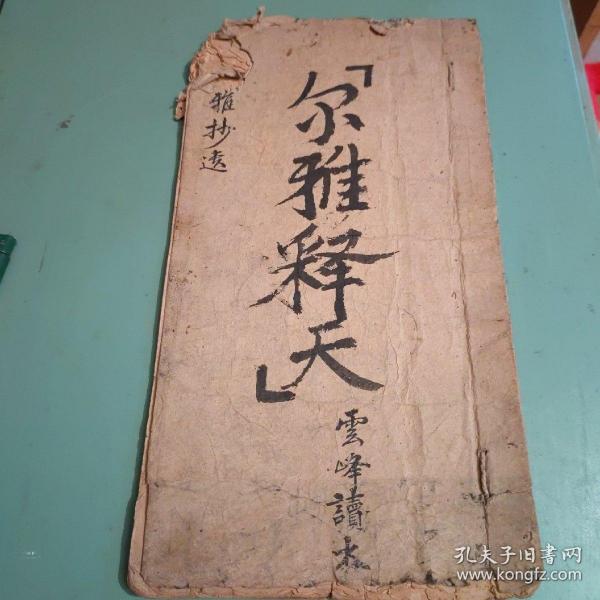 「尔雅释天」
雲峰讀本
雅抄遠
孔夫子旧书网
www.kongfz.com